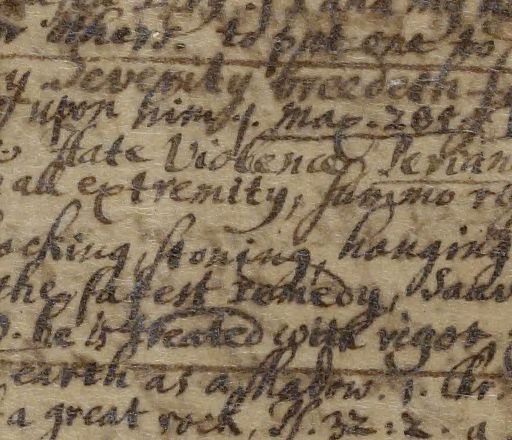 others. to put one to
severity breedeth
upon him. j. Max. 281
state Violence,
all extremity, summo
acking, stoning, hanging
the safest remedy, sauv
he is treated with rigor
earth as a shadow. j. Chr
a great rock, Is. 32:2. a